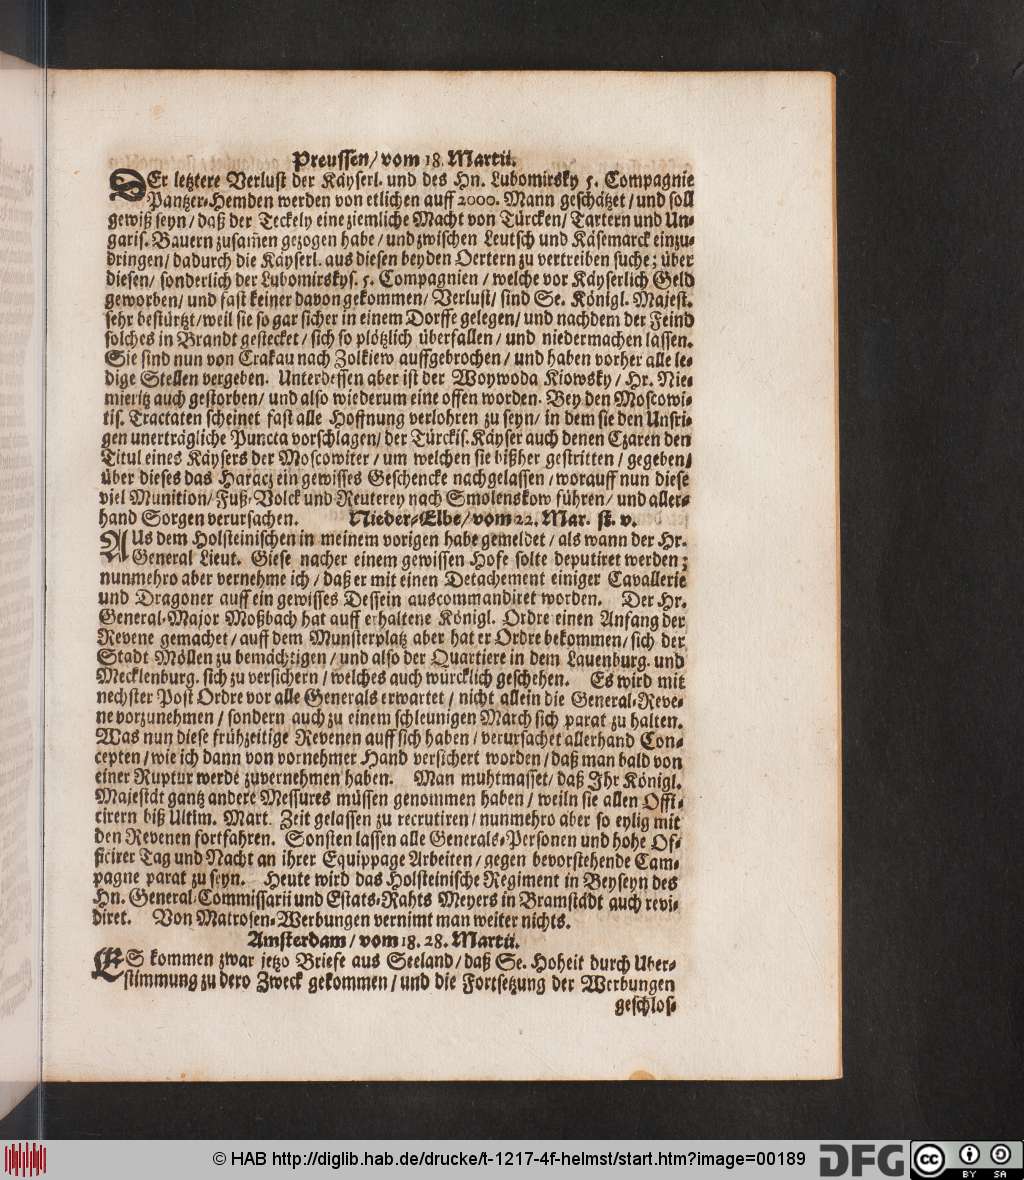 Preussen/ vom 18. Martii.
DEr letztere Verlust der Käyserl. und des Hn. Lubomirsky 5. Compagnie
Pantzer-Hemden werden von etlichen auff 2000. Mann geschätzet/ und soll
gewiß seyn/ daß der Teckely eine ziemliche Macht von Türcken/ Tartern und Un-
garis. Bauern zusam̃en gezogen habe/ und zwischen Leutsch und Käsemarck einzu-
dringen/ dadurch die Käyserl. aus diesen beyden Oertern zu vertreiben suche; über
diesen/ sonderlich der Lubomirskys. 5. Compagnien/ welche vor Käyserlich Geld
geworben/ und fast keiner davon gekommen/ Verlust/ sind Se. Königl. Majest.
sehr bestürtzt/ weil sie so gar sicher in einem Dorffe gelegen/ und nachdem der Feind
solches in Brandt gestecket/ sich so plötzlich überfallen/ und niedermachen lassen.
Sie sind nun von Crakau nach Zolkiew auffgebrochen/ und haben vorher alle le-
dige Stellen vergeben. Unterdessen aber ist der Woywoda Kiowsky/ Hr. Nie-
mieritz auch gestorben/ und also wiederum eine offen worden. Bey den Moscowi-
tis. Tractaten scheinet fast alle Hoffnung verlohren zu seyn/ in dem sie den Unsri-
gen unerträgliche Puncta vorschlagen/ der Türckis. Käyser auch denen Czaren den
Titul eines Käysers der Moscowiter/ um welchen sie bißher gestritten/ gegeben/
über dieses das Haracz ein gewisses Geschencke nachgelassen/ worauff nun diese
viel Munition/ Fuß-Volck und Reuterey nach Smolenskow führen/ und aller-
hand Sorgen verursachen. Nieder-Elbe/ vom 22. Mar. st. v.
AUs dem Holsteinischen in meinem vorigen habe gemeldet/ als wann der Hr.
General Lieut. Giese nacher einem gewissen Hofe solte deputiret werden;
nunmehro aber vernehme ich/ daß er mit einen Detachement einiger Cavallerie
und Dragoner auff ein gewisses Dessein auscommandiret worden. Der Hr.
General-Major Moßbach hat auff erhaltene Königl. Ordre einen Anfang der
Revene gemachet/ auff dem Munsterplatz aber hat er Ordre bekommen/ sich der
Stadt Möllen zu bemächtigen/ und also der Quartiere in dem Lauenburg. und
Mecklenburg. sich zu versichern/ welches auch würcklich geschehen. Es wird mit
nechster Post Ordre vor alle Generals erwartet/ nicht allein die General-Reve-
ne vorzunehmen/ sondern auch zu einem schleunigen March sich parat zu halten.
Was nun diese frühzeitige Revenen auff sich haben/ verursachet allerhand Con-
cepten/ wie ich dann von vornehmer Hand versichert worden/ daß man bald von
einer Ruptur werde zuvernehmen haben. Man muhtmasset/ daß Ihr Königl.
Majestät gantz andere Messures müssen genommen haben/ weiln sie allen Offi-
cirern biß Ultim. Mart. Zeit gelassen zu recrutiren/ nunmehro aber so eylig mit
den Revenen fortfahren. Sonsten lassen alle Generals-Personen und hohe Of-
ficirer Tag und Nacht an ihrer Equippage Arbeiten/ gegen bevorstehende Cam-
pagne parat zu seyn. Heute wird das Holsteinische Regiment in Beyseyn des
Hn. General-Commissarii und Estats-Rahts Meyers in Bramstädt auch revi-
diret. Von Matrosen-Werbungen vernimt man weiter nichts.
Amsterdam/ vom 18. 28. Martii.
ES kommen zwar jetzo Briefe aus Seeland/ daß Se. Hoheit durch Uber-
stimmung zu dero Zweck gekommen/ und die Fortsetzung der Werbungen
geschlos-
© HAB http://diglib.hab.de/drucke/t-1217-4f-helmst/start.htm?image=00189
DFG
cc BY SA